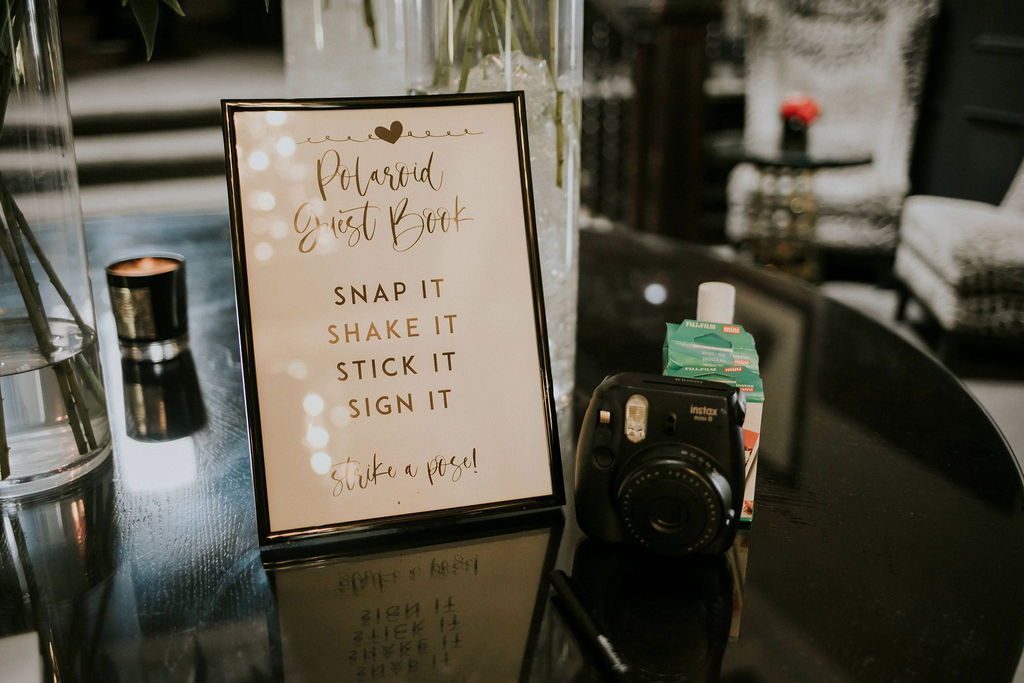 Polaroid
Guest Book
SNAP IT
SHAKE IT
STICK IT
SIGN IT
strike a pose!
FUJIFILM mini
FUJIFILM mini
instax
mini 8